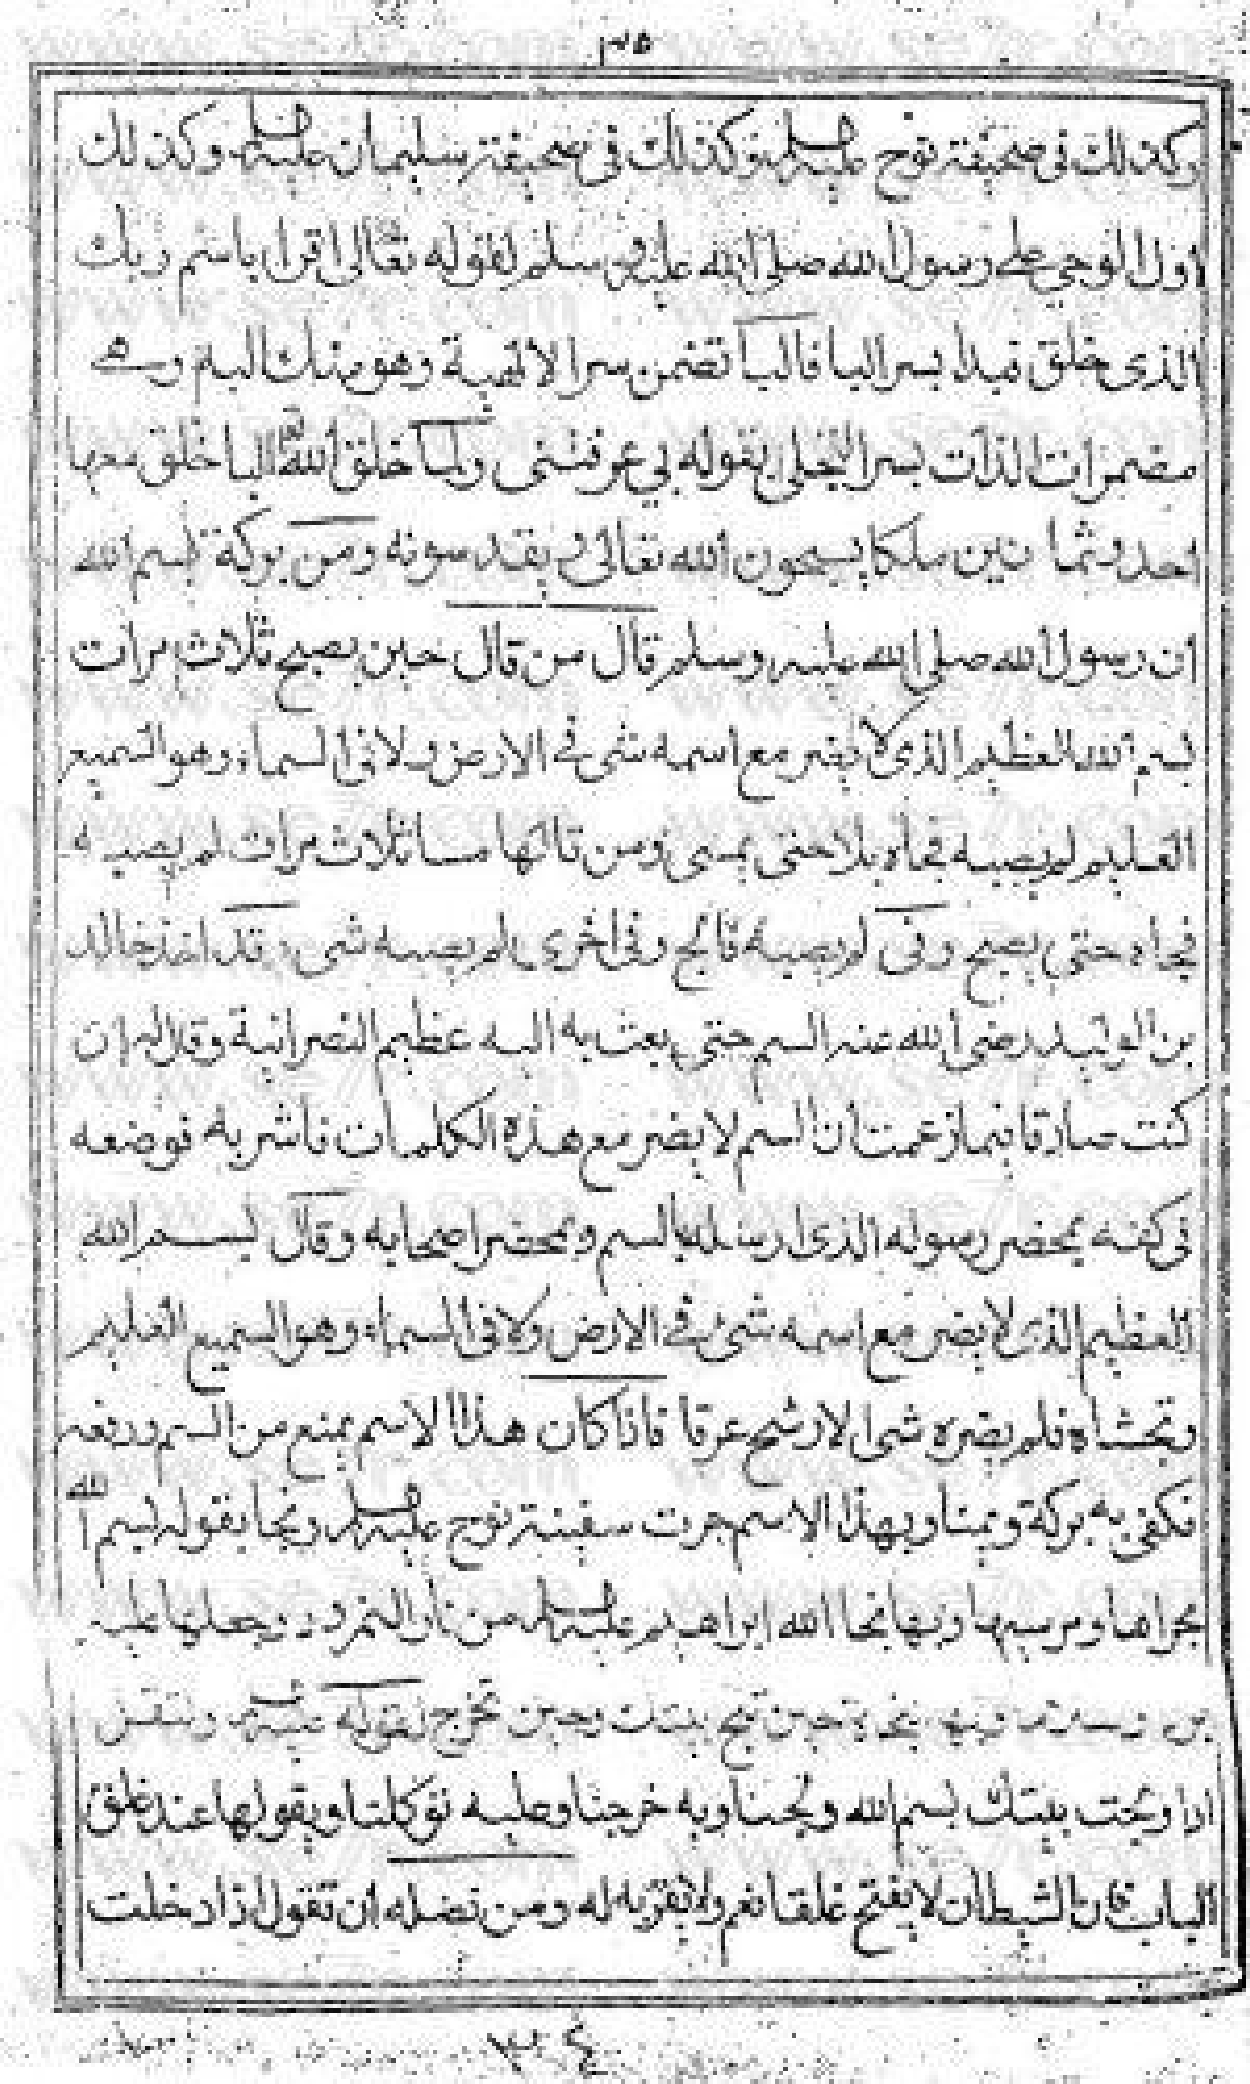 ٣٥
وكذلك فى صحيفة نوح عليه السلم وكذلك فى صحيفة سليمان عليه السلم وكذلك
اول الوحي على رسول الله صلى الله عليه وسلم لقوله تعالى اقرا باسم ربك
الذى خلق فبدا بسر البا فالبا تضمن سر الالهية وهو منك اليه وهى
مضمرات الذات بسر التجلى بقوله بي عرفتنى ولما خلق الله البا خلق معها
احد وثمانين ملكا يسبحون الله تعالى ويقدسونه ومن بركة بسم الله
ان رسول الله صلى الله عليه وسلم قال من قال حين يصبح ثلاث مرات
بسم الله العظيم الذى لا يضر مع اسمه شى فى الارض ولا فى السماء وهو السميع
العليم لم يصبه فجاة بلا حتى يمسى ومن قالها مسا ثلاث مرات لم يصبه
فجاه حتى يصبح وفى لم يصبه فالج وفى اخرى لم يصبه شى وقد اخذ خالد
بن الوليد رضى الله عنه السم حتى بعث به اليه عظيم النصرانية وقال له ان
كنت صادقا فيما زعمت ان السم لا يضر مع هذه الكلمات فاشربه فوضعه
فى كفه بمحضر رسوله الذى ارسله بالسم وبمحضر اصحابه وقال بسم الله
العظيم الذى لا يضر مع اسمه شئ فى الارض ولا فى السماء وهو السميع العليم
وتحشاه فلم يضره شى الا رشح عرقا فاذا كان هذا الاسم يمنع من السم ودفعه
فكفى به بركة ويمنا وبهذا الاسم جرت سفينة نوح عليه السلم ونجا بقوله بسم الله
مجراها ومرسيها وبها نجا الله ابراهيم عليه السلم من نار النمرود وجعلها عليه
حين بيتك وحين تخرج لقوله عليه السلم
اذا ولجت بيتك بسم الله ولجنا وبه خرجنا وعليه توكلنا ويقولها عند غلق
الباب فان الشيطان لا يفتح غلقا نعم ولا يقربه له ومن فضله ان تقول اذا دخلت